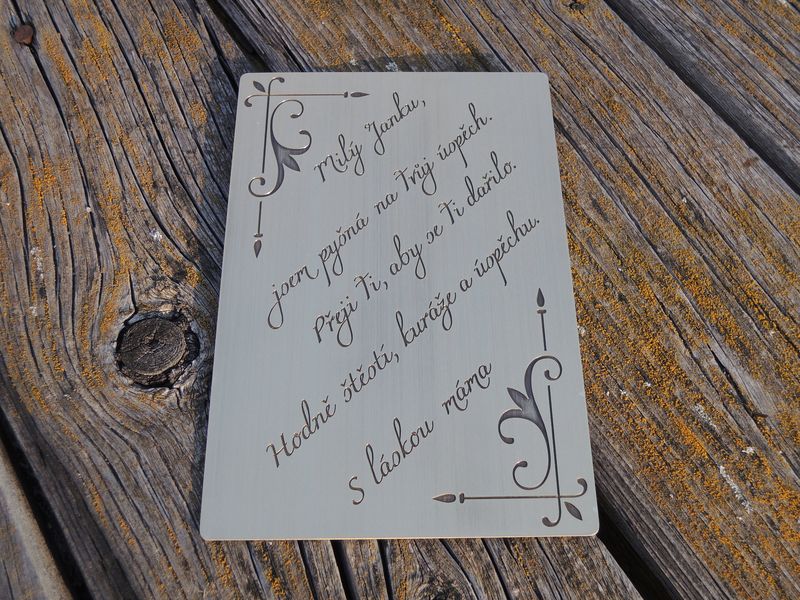 Milý Janku,
jsem pyšná na Tvůj úspěch.
Přeji Ti, aby se Ti dařilo.
Hodně štěstí, kuráže a úspěchu.
S láskou máma